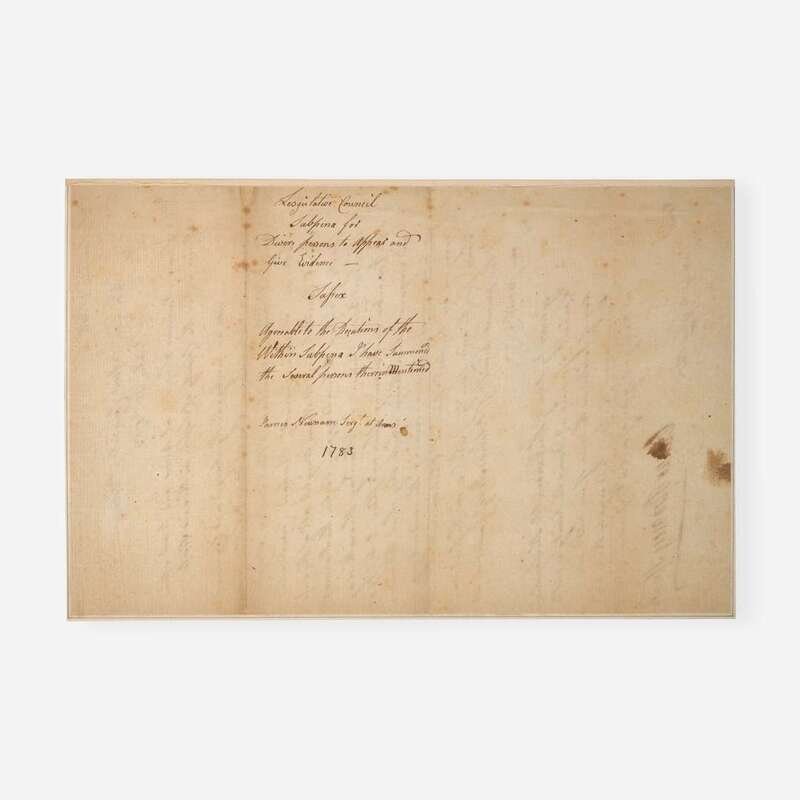 Legislative Council
Subpena for
Divers persons to Appear and
Give Evidence —
Sussex
Agreeable to the Directions of the
Within Subpena I have Summond
the Several persons therein Mentioned
James Newnam Serjt. at Arms
1783